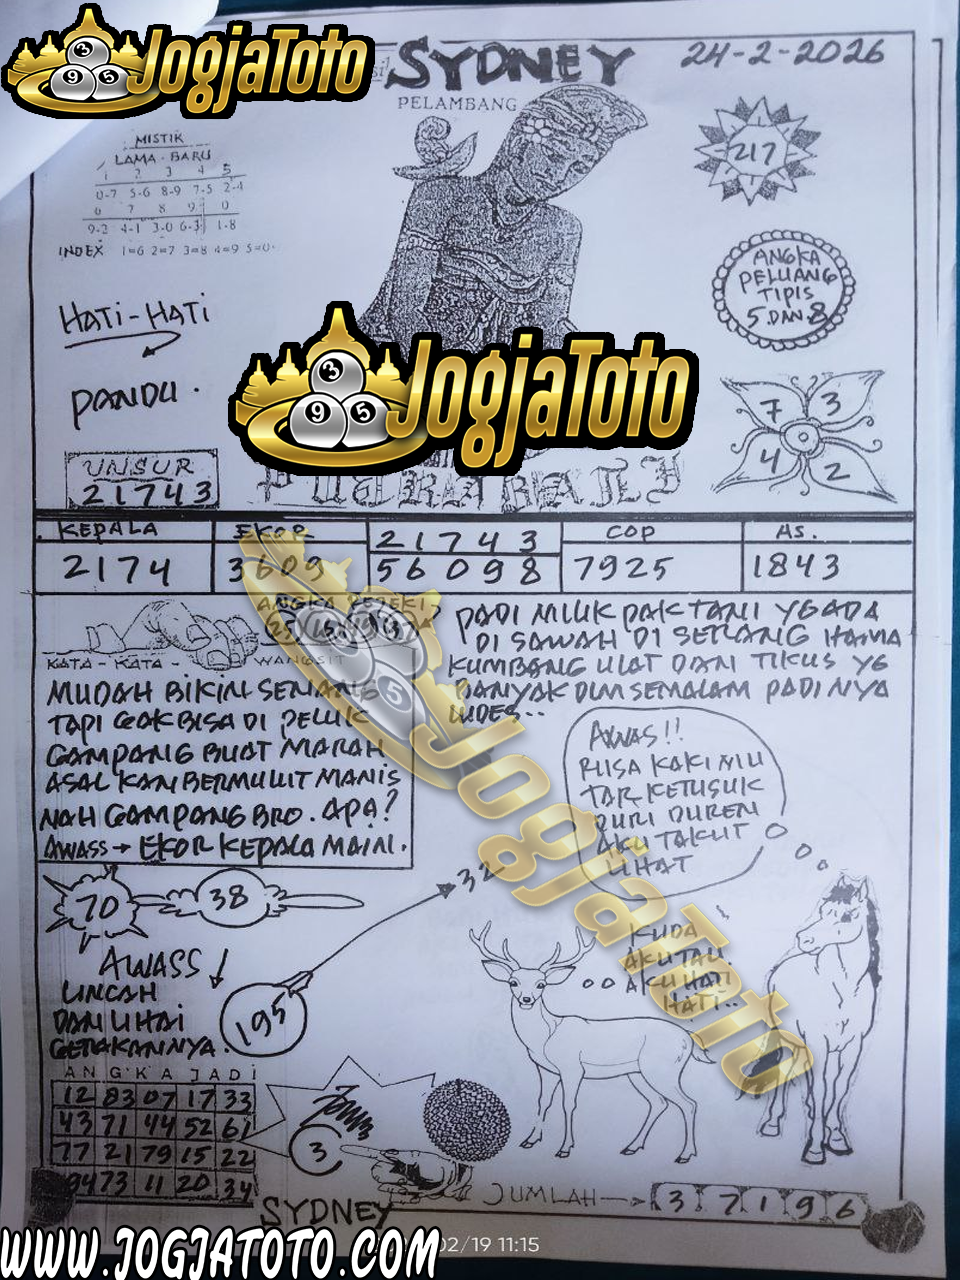 JogjaToto
SYDNEY
24-2-2026
PELAMBANG
MISTIK
LAMA - BARU
1 2 3 4 5
0-7 5-6 8-9 7-5 2-4
6 7 8 9 0
9-2 4-1 3-0 6-3 1-8
INDEX 1=6 2=7 3=8 4=9 5=0
217
ANGKA
PELUANG
TIPIS
5 DAN 8
HATI-HATI
PANDU.
JogjaToto
7 3
4 2
UNSUR
21743
KEPALA EKOR 21743 COP AS.
2174 3609 56098 7925 1843
KATA - KATA - WANGSIT
MUDAH BIKIN SENANG
TAPI GAK BISA DI PELUK
GAMPANG BUAT MARAH
ASAL KAN BERMULUT MANIS
NAH GAMPANG BRO. APA?
AWASS → EKOR KEPALA MAIN.
PADI MILIK PAK TANI YG ADA
DI SAWAH DI SERANG HAMA
KUMBANG ULAT DAN TIKUS YG
BANYAK DLM SEMALAM PADI NYA
LUDES..
AWAS!!
RUSA KAKI MU
TAR KETUSUK
DURI DUREN
AKU TAKUT
LIHAT
70
38
32
KUDA
AKU TAU.
AKU HATI
HATI..
AWASS!
LINCAH
DAN LIHAI
GERAKANNYA.
195
ANGKA JADI
12 83 07 17 33
43 71 44 52 61
77 21 79 15 22
94 73 11 20 34
3
JogjaToto
SYDNEY
JUMLAH → 3 7 1 9 6
WWW.JOGJATOTO.COM
02/19 11:15